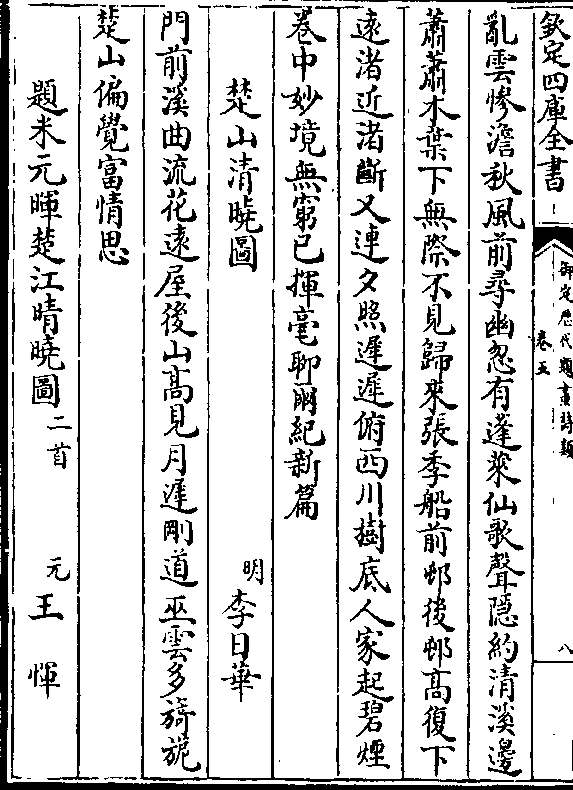 欽定四庫全書
御定歷代題畫詩類
卷五
八
亂雲慘澹秋風前尋幽忽有蓬萊仙歌聲隱約清溪邊
蕭蕭木葉下無際不見歸來張季船前邨後邨高復下
遠渚近渚斷又連夕照遲遲俯西川樹底人家起碧煙
卷中妙境無窮已揮毫聊爾紀新篇
楚山清曉圖
明 李日華
門前溪曲流花遠屋後山高見月遲剛道巫雲多旖旎
楚山偏覺富情思
題米元暉楚江晴曉圖二首
元 王惲